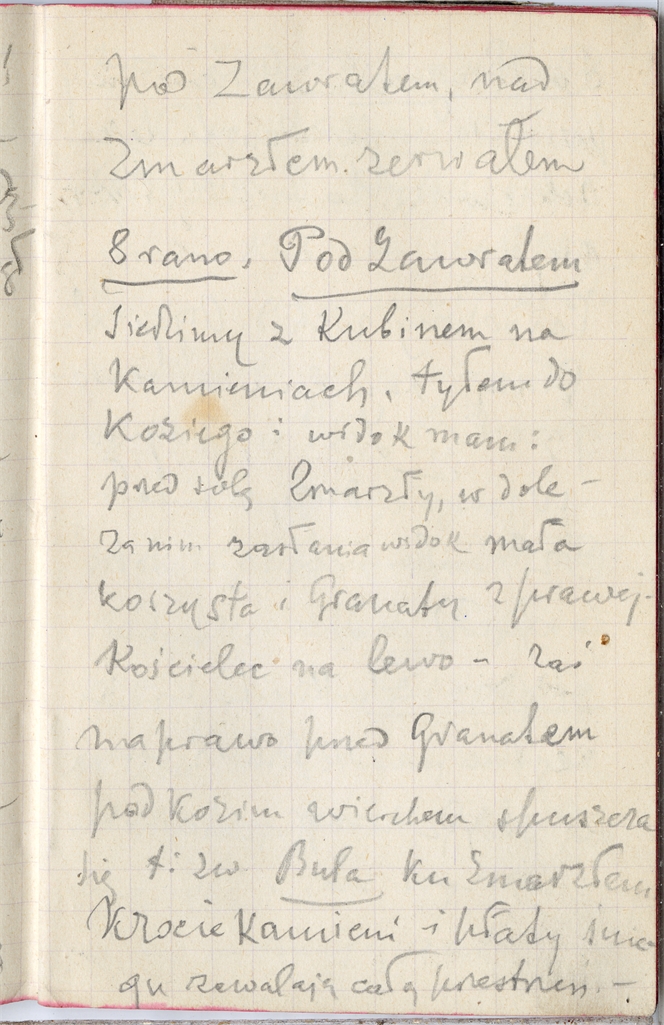 pod Zawratem, nad
Zmarzłem. zerwałem
8 rano. Pod Zawratem
Siedzimy z Kubinem na
Kamieniach, tyłem do
Koziego i widok mam:
przed sobą Zmarzły, w dole –
za nim zasłania widok mała
koszysta i Granaty z prawej.
Kościelec na lewo – zaś
na prawo przed Granatem
pod Kozim wierchem spuszcza
się t: zw Buła ku Zmarzłem
Krocie Kamieni i płaty śnie
gu zawalają całą przestrzeń. –